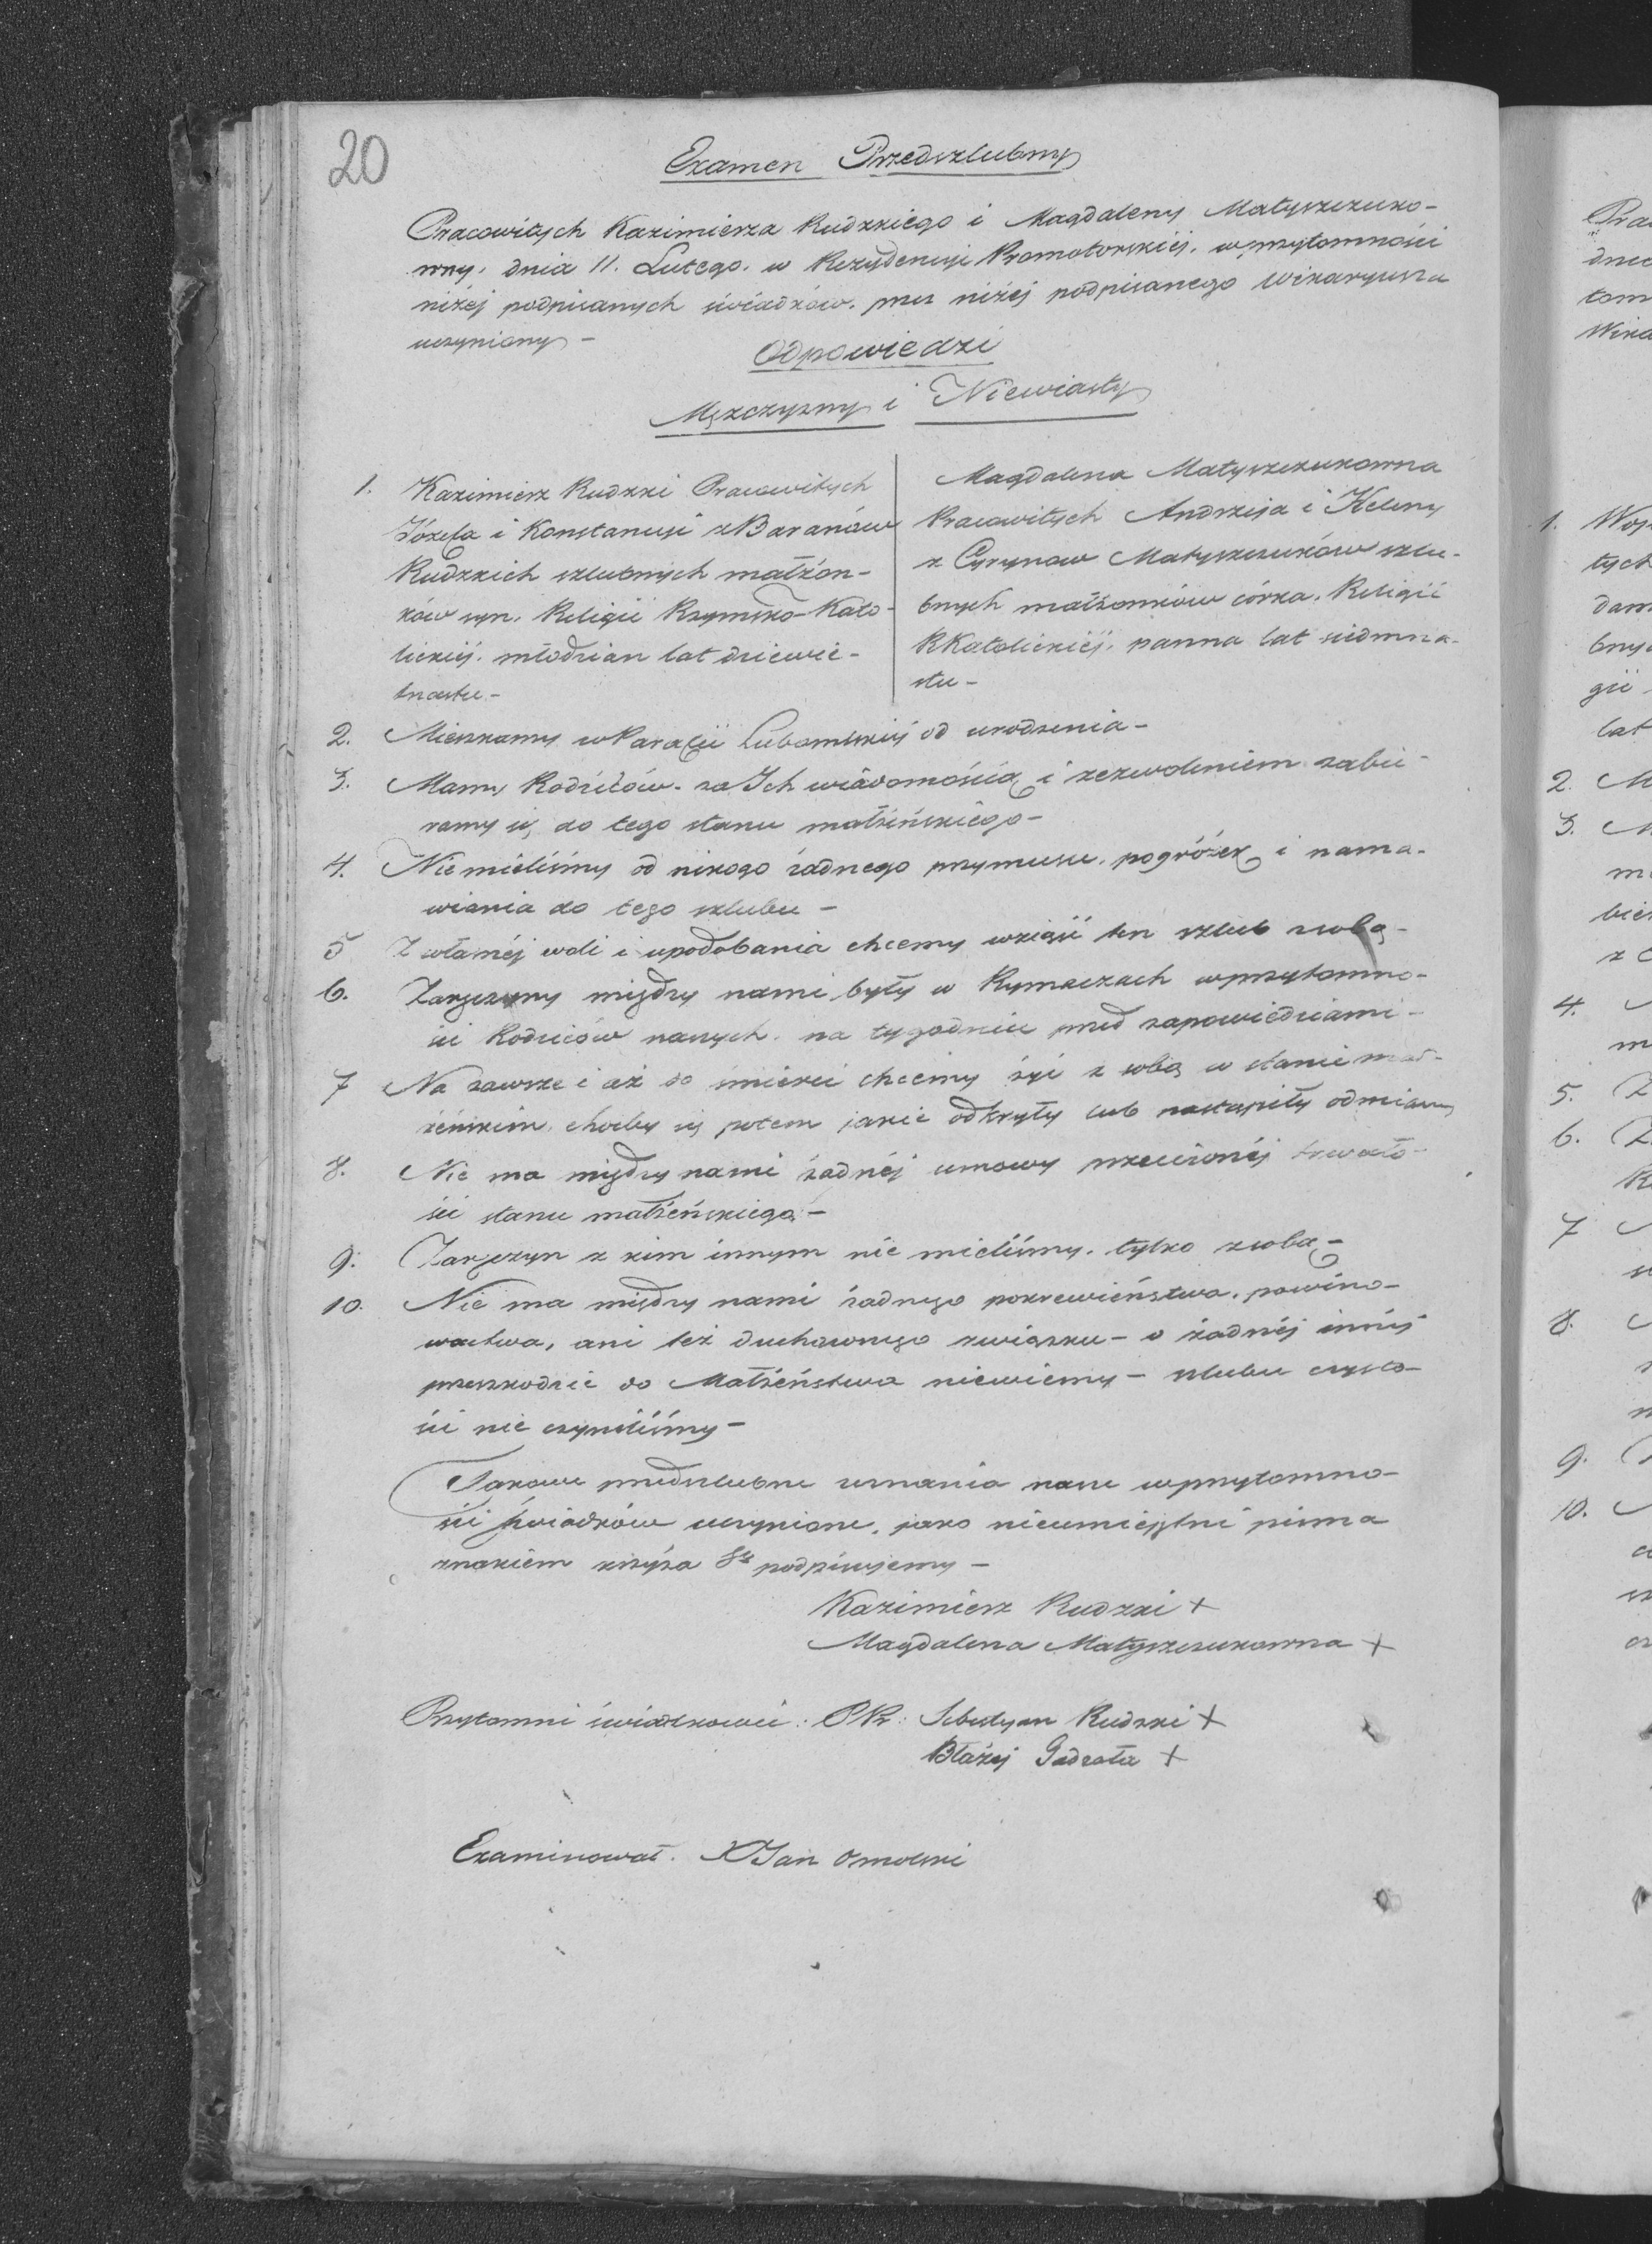 20
Examen Przedszlubny
Pracowitych Kazimierza Rudzkiego i Magdaleny Matyszczuko-
wny. dnia 11. Lutego. w Rezydencyi Promotorskiéj. w przytomności
niżéj podpisanych świadków. przez niżéj podpisanego Wikaryusza
uczyniony –
Odpowiedzi
Męzczyzny i Niewiasty
1. Kazimierz Rudzki Pracowitych
Józefa i Konstancyi z Baranów
Rudzkich szlubnych małżon-
ków syn. Religii Rzymsko-Kato-
lickiéj. młodzian lat dziewię-
tnastu –
Magdalena Matyszczukowna
Pracowitych Andrzeja i Heleny
z Cyrynow Matyszczuków szlu-
bnych małżonków córka. Religii
RKatolickiéj. panna lat siedmna-
stu –
2. Mieszkamy w Parafii Lubomlskiéj od urodzenia –
3. Mamy Rodziców. za Ich wiadomością i zezwoleniem zabie-
ramy się do tego stanu małżeńskiego –
4. Nie mieliśmy od nikogo żadnego przymusu. pogróżek i nama-
wiania do tego szlubu –
5 Z własnéj woli i upodobania chcemy wziąść ten szlub z sobą –
6. Zaręczyny między nami były w Rymaczach w przytomno-
ści Rodziców naszych. na tygodniu przed zapowiedziami –
7 Na zawsze i aż do śmierci chcemy żyć z sobą w stanie mał-
żeńskim, choćby się potem jakie odkryły lub nastąpiły odmiany
8. Nie ma między nami żadnéj umowy przeciwnéj trwało-
ści stanu małżeńskiego –
9. Zaręczyn z kim innym nie mieliśmy. tylko z sobą –
10. Nie ma między nami żadnego pokrewieństwa. powino-
wactwa, ani też duchownego związku – o żadnéj innéj
przeszkodzie do Małżeństwa niewiemy – szlubu czysto-
ści nie czyniliśmy –
Takowe przedszlubne zeznania nasze w przytomno-
ści świadków uczynione, jako nieumiejętni pisma
znakiem krzyża Sgo podpisujemy –
Kazimierz Rudzki +
Magdalena Matyszczukowna +
Przytomni świadkowie: PR: Sebestyan Rudzki +
Błażej Gadzała +
Examinował. X Jan Omolski